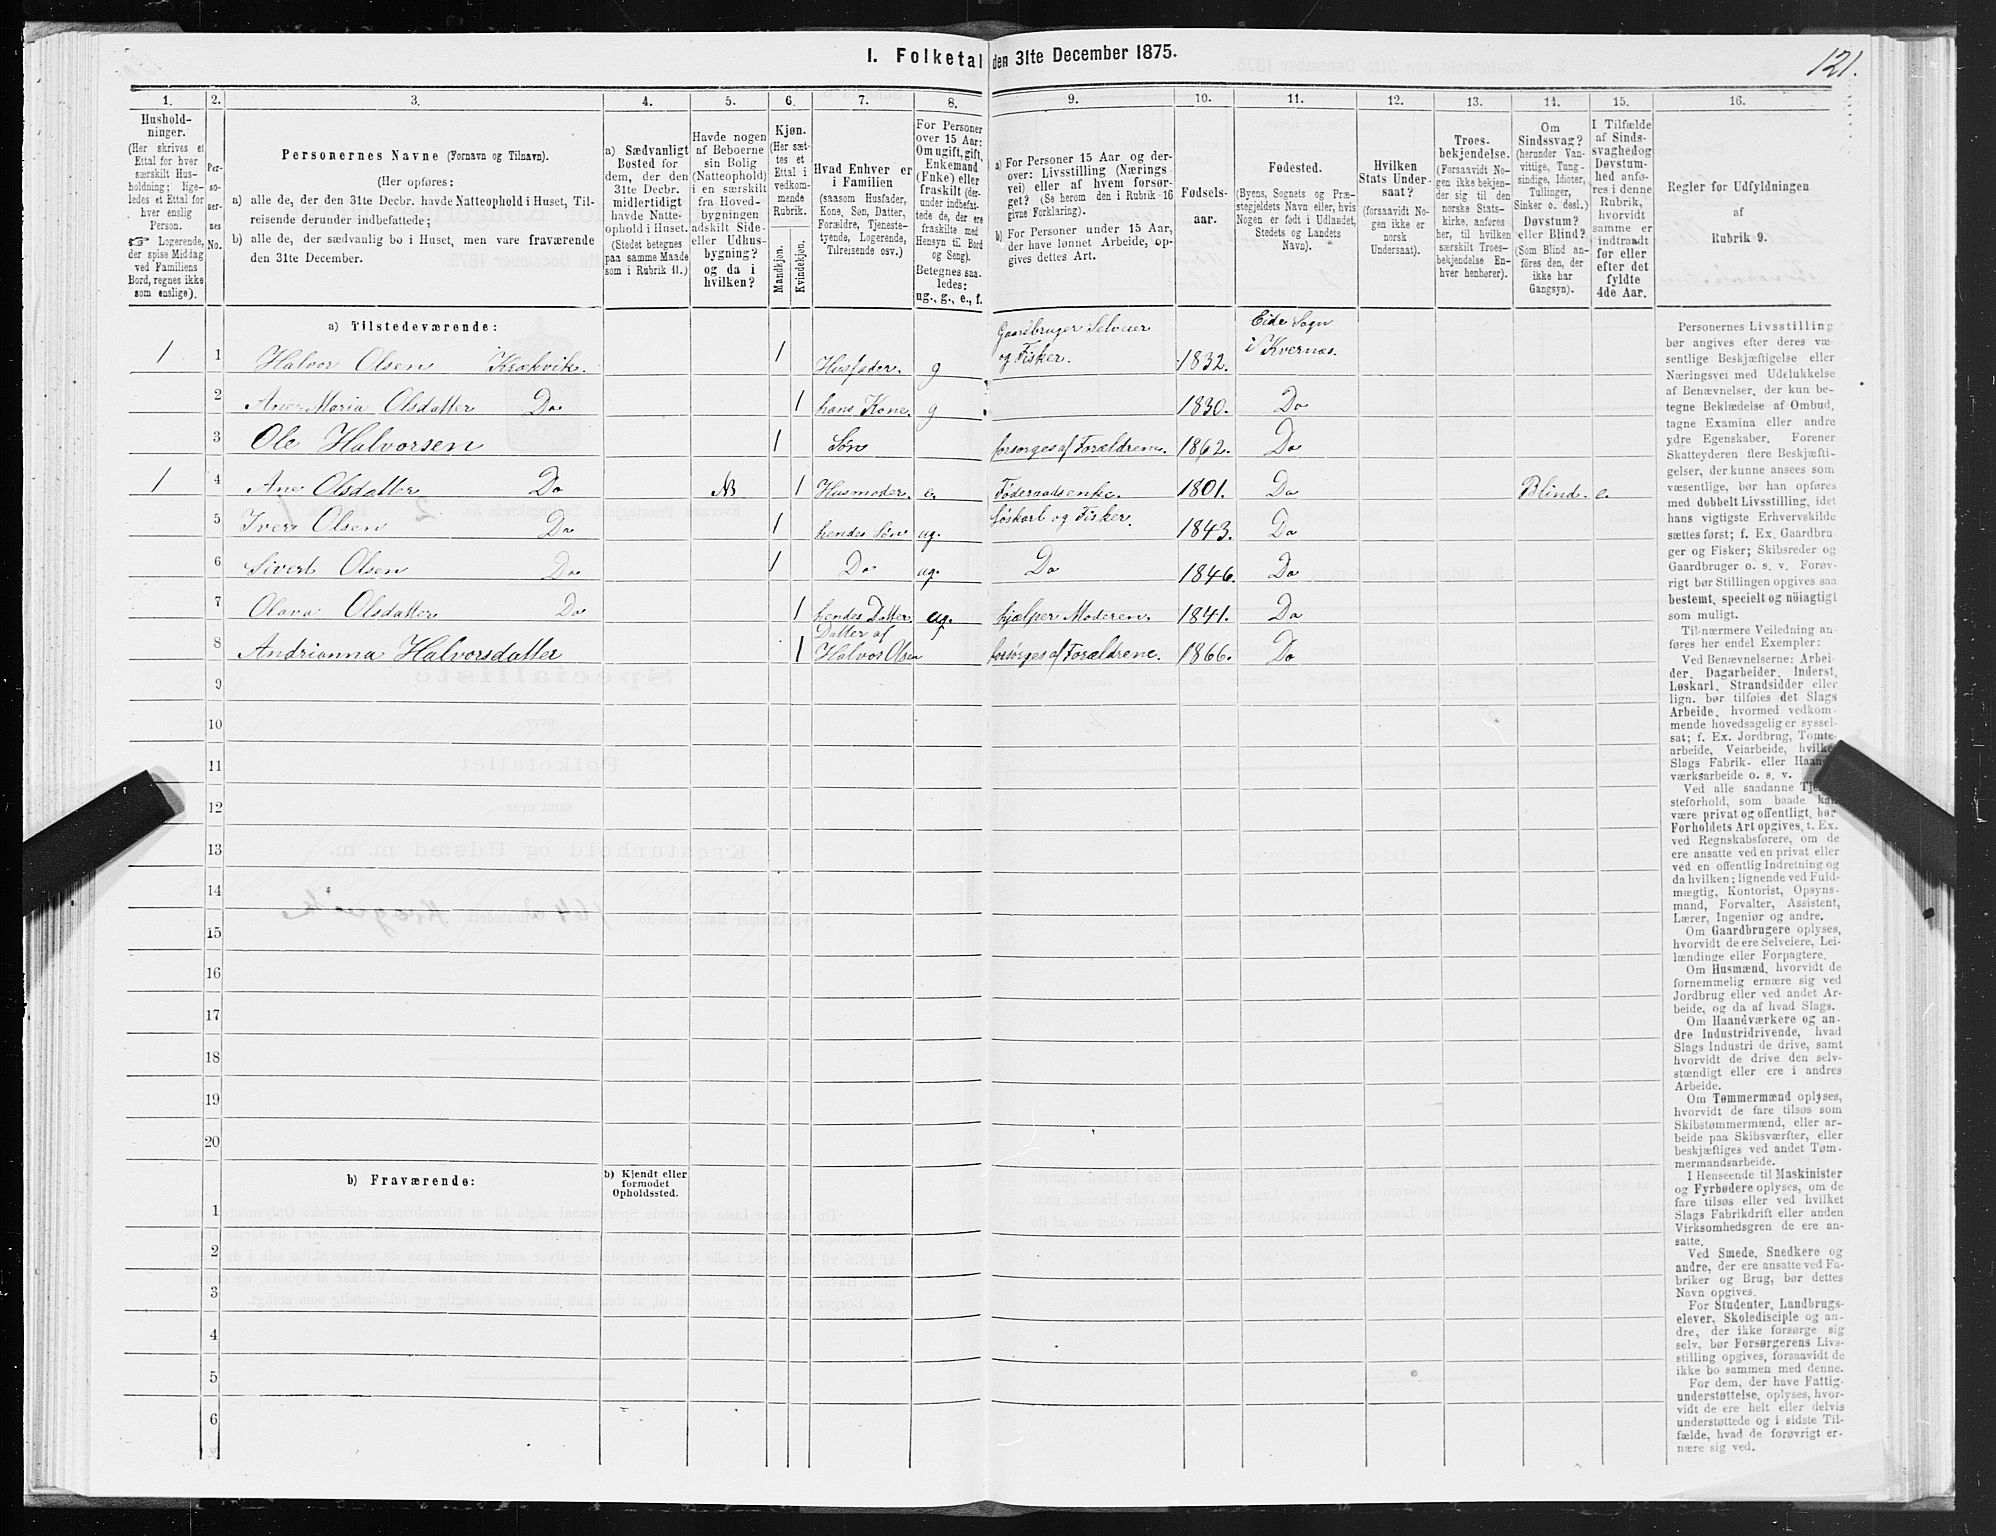 I. Folketal den 31te December 1875.
121.
1.
2.
3.
4.
5.
6.
7.
8.
9.
10.
11.
12.
13.
14.
15.
16.
Hushold-
ninger.
(Her skrives et
Ettal for hver
særskilt Hus-
holdning; lige-
ledes et Ettal for
hver enslig
Person.
☞ Logerende,
der spise Middag
ved Familiens
Bord, regnes ikke
som enslige).
Per-
so-
ner-
nes
No.
Personernes Navne (Fornavn og Tilnavn).
(Her opføres:
a) alle de, der den 31te Decbr. havde Natteophold i Huset, Til-
reisende derunder indbefattede;
b) alle de, der sædvanlig bo i Huset, men vare fraværende
den 31te December.
a) Sædvanligt
Bosted for
dem, der den
31te Decbr.
midlertidigt
havde Natte-
ophold i Huset.
(Stedet betegnes
paa samme Maade
som i Rubrik 11.)
Havde nogen
af Beboerne
sin Bolig
(Natteophold)
i en særskilt
fra Hoved-
bygningen
adskilt Side-
eller Udhus-
bygning?
og da i
hvilken?
Kjøn.
(Her sæt-
tes et
Ettal i
vedkom-
mende
Rubrik.
Mandkjøn.
Kvindekjøn.
Hvad Enhver er
i Familien
(saasom Husfader,
Kone, Søn, Datter,
Forældre, Tjeneste-
tyende, Logerende,
Tilreisende osv.)
For Personer
over 15 Aar:
Om ugift, gift,
Enkemand
(Enke) eller
fraskilt (der-
under indbefat-
tede de, der ere
fraskilte med
Hensyn til Bord
og Seng).
Betegnes saa-
ledes:
ug., g., e., f.
a) For Personer 15 Aar og der-
over: Livsstilling (Nærings
vei) eller af hvem forsør-
get? (Se herom den i Rubrik 16
givne Forklaring).
b) For Personer under 15 Aar,
der have lønnet Arbeide, op-
gives dettes Art.
Fødsels-
aar.
Fødested.
(Byens, Sognets og Præ-
stegjeldets Navn eller, hvis
Nogen er født i Udlandet,
Stedets og Landets
Navn).
Hvilken
Stats Under-
saat?
(forsaavidt No-
gen ikke er
norsk
Undersaat).
Troes-
bekjendelse.
(Forsaavidt No-
gen ikke bekjen-
der sig til den
norske Stats-
kirke, anføres
her, til hvilken
særskilt Troes-
bekjendelse En-
hver henhører).
Om
Sindssvag?
(herunder Van-
vittige, Tung-
sindige, Idioter,
Tullinger,
Sinker o. desl.)
Døvstum?
eller Blind?
(Som Blind an-
føres den, der
ikke har
Gangsyn).
I Tilfælde
af Sinds-
svaghed og
Døvstum-
hed anfø-
res i denne
Rubrik,
hvorvidt
samme er
indtraadt
før eller
efter det
fyldte
4de Aar.
Regler for Udfyldningen
af
Rubrik 9.
a) Tilstedeværende:
1 1 Halvor Olsen Krækvik. 1 Husfader. g Gaardbruger Selveier og Fisker. 1832. Eide Sogn i Kvernæs.
2 Ane Maria Olsdatter Do 1 hans Kone. g 1830. Do
3 Ole Halvorsen 1 Søn forsørges af Forældrene. 1862. Do
1 4 Ane Olsdatter Do 1 Husmoder. e. Føderaadsenke. 1801. Do Blind. e.
5 Iver Olsen Do 1 hendes Søn ug. Løskarl og Fisker. 1843. Do
6 Sivert Olsen Do 1 Do ug. Do 1846. Do
7 Olava Olsdatter Do 1 hendes Datter ug. hjælper Moderen. 1841. Do
8 Andrianna Halvorsdatter 1 Datter af Halvor Olsen forsørges af Forældrene. 1866. Do
9
10
11
12
13
14
15
16
17
18
19
20
b) Fraværende:
b) Kjendt eller
formodet
Opholdssted.
1
2
3
4
5
6
Personernes Livsstilling
bør angives efter deres væ-
sentlige Beskjæftigelse eller
Næringsvei med Udelukkelse
af Benævnelser, der kun be-
tegne Beklædelse af Ombud,
tagne Examina eller andre
ydre Egenskaber. Forener
Skatteyderen flere Beskjæfti-
gelser, der kunne ansees som
væsentlige, bør han opføres
med dobbelt Livsstilling, idet
hans vigtigste Erhvervskilde
sættes først; f. Ex. Gaardbru-
ger og Fisker; Skibsreder og
Gaardbruger o. s. v. Forøv-
rigt bør Stillingen opgives saa
bestemt, specielt og nöiagtigt
som muligt.
Til nærmere Veiledning an-
føres her endel Exempler:
Ved Benævnelserne: Arbei-
der, Dagarbeider, Inderst,
Løskarl, Strandsidder eller
lign. bør tilføies det Slags
Arbeide, hvormed vedkom-
mende hovedsagelig er syssel-
sat; f. Ex. Jordbrug, Tomte-
arbeide, Veiarbeide, hvilket
Slags Fabrik- eller Haand-
værksarbeide o. s. v.
Ved alle saadanne Tjene-
steforhold, som baade kan
være privat og offentligt, bør
Forholdets Art opgives, t. Ex.
ved Regnskabsførere, om de
ere ansatte ved en privat eller
ved en offentlig Indretning og
da hvilken; lignende ved Fuld-
mægtig, Kontorist, Opsyns-
mand, Forvalter, Assistent,
Lærer, Ingeniør og andre.
Om Gaardbrugere oplyses,
hvorvidt de ere Selveiere, Lei-
lændinge eller Forpagtere.
Om Husmænd, hvorvidt de
fornemmelig ernære sig ved
Jordbrug eller ved andet Ar-
beide, og da af hvad Slags.
Om Haandværkere og an-
dre Industridrivende, hvad
Slags Industri de drive, samt
hvorvidt de drive den selv-
stændigt eller ere i andres
Arbeide.
Om Tømmermænd oplyses,
hvorvidt de fare tilsøs som
Skibstømmermænd, eller ar-
beide paa Skibsværfter, eller
beskjæftiges ved andet Tøm-
mermandsarbeide.
I Henseende til Maskinister
og Fyrbødere oplyses, om de
fare tilsøs eller ved hvilket
Slags Fabrikdrift eller anden
Virksomhedsgren de ere an-
satte.
Ved Smede, Snedkere og
andre, der ere ansatte ved Fa-
briker og Brug, bør dettes
Navn opgives.
For Studenter, Landbrugs-
elever, Skoledisciple og an-
dre, der ikke forsørge sig
selv, bør Forsørgerens Livs-
stilling opgives, forsaavidt de
ikke bo sammen med denne.
For dem, der have Fattig-
understøttelse, oplyses, hvor-
vidt de ere helt eller delvis
understøttede og i sidste Til-
fælde, hvad de forøvrigt er-
nære sig ved.